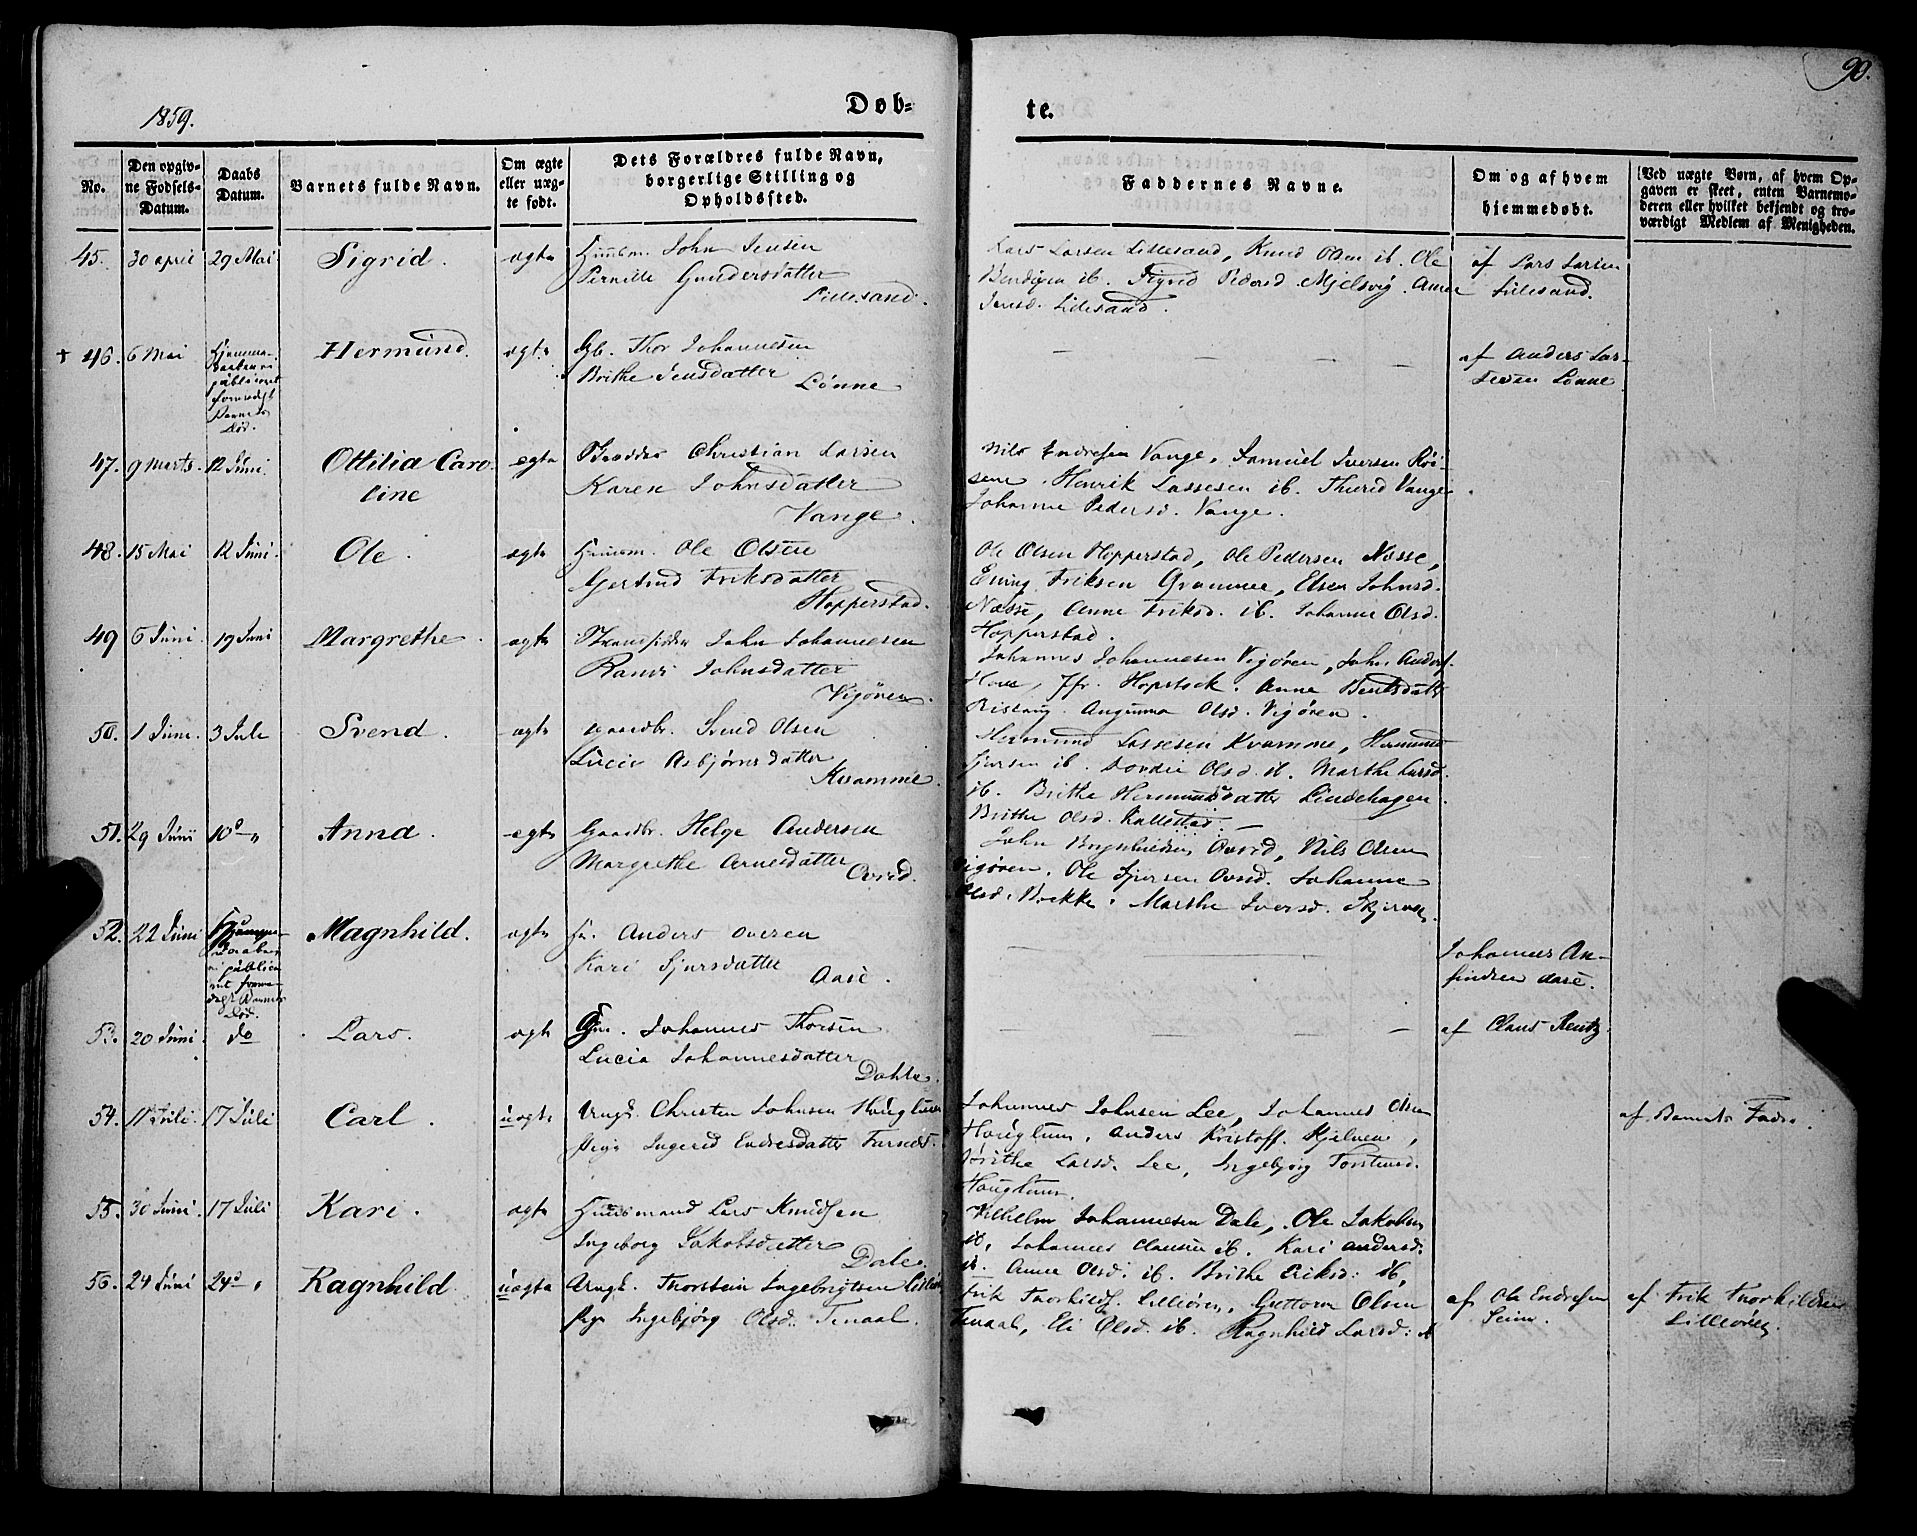 1859.
Døb-
te.
90.
No.
Den opgiv-
ne Fødsels-
Datum.
Daabs
Datum.
Barnets fulde Navn.
Om ægte
eller uæg-
te født.
Dets Forældres fulde Navn,
borgerlige Stilling og
Opholdssted.
Faddernes Navne.
Om og af hvem
hjemmedøbt.
Ved uægte Børn, af hvem Op-
gaven er skeet, enten Barnemo-
deren eller hvilket bekjendt og tro-
værdigt Medlem af Menigheden.
45. 30 april 29 Mai Sigrid. ægte Huusm. John Jensen
Pernille Gundersdatter
Lillesand.
Lars Larsen Lillesand, Knud Olsen ib. Ole
ib. Sigrid Pedersd. Mjelsvig. Anne
Jensd. Lillesand.
af Lars Larsen
Lillesand.
† 46. 6 Mai
publiceret
formedelst
Barnets
Død.
Hermund. ægte Gb. Thor Johannesen
Brithe Jensdatter Lønne
af Anders Lar-
Lønne
47. 9 Marts. 12 Juni. Ottilia Caro-
line
ægte Christian Larsen
Karen Johnsdatter
Vange.
Nils Endresen Vange, Samuel Iversen Röi-
sene. Henrik Lassesen ib. Thurid Vange
Johanne Pedersd. Vange.
48. 15 Mai 12 Juni. Ole. ægte Huusm. Ole Olsen
Gjertrud Eriksdatter
Hopperstad.
Ole Olsen Hopperstad, Ole Pedersen Næsse,
Eriksen Elsen Johnsd.
Næsse, Anne Eriksd. ib. Johanne Olsd.
Hopperstad.
49 6 Juni. 19 Juni Margrethe. ægte Strandsidder John Johannesen
Ranvi Johnsdatter
Vigøren.
Johannes Johannesen Vigøren, John Anders.
Hove, Hopstock. Anne Bentsdatt.
Ristoug. Angunna Olsd. Vigøren.
50. 1 Juni. 3 Jule Svend. ægte gaardbr. Svend Olsen
Lucie Asbjørnsdatter
Kvamme.
Hermund Lassesen Kvamme, Hermund
Sjursen ib. Olsd. ib. Marthe Larsd.
ib. Brithe Hermundsdatter Lindehagen.
Brithe Olsd. Kallestad.
51. 29 Juni 10 d " Anna. ægte Gaardbr. Helge Andersen
Margrethe Arnesdatter
Ovrid.
John Brynhildsen Ovrid, Nils Olsen
Vigøren. Ole Sjursen Ovrid. Johanne
Olsd. Bøkke. Marthe Iversd. Skjerven
52. 22 Juni
publice-
ret forme-
delst Barnets
Død.
Magnhild. ægte Anders
Kari Sjursdatter
Aase.
Johannes An-
findsen Aase.
53. 20 Juni. do Lars. ægte Johannes Thorsen
Lucia Johannesdatter
Dahle.
af Claus Rentz.
54. 11 Juli. 17 Juli Carl. uægte Ungk. Christen Johnsen Houglum
Pige Ingerid Endresdatter
Johannes Johnsen Lee, Johannes Olsen
Houglum, Anders Kristoff. Skjelven,
Brithe Larsd. Lee, Ingebjørg Torstensd.
Houglum.
af Barnets Fader.
55. 30 Juni. 17 Juli Kari. ægte Huusmand Lars Knudsen
Ingeborg Jakobsdatter
Dale.
Vilhelm Johannesen Dale, Ole Jakobsen
ib. Johannes Clausen ib. Kari Andersd.
ib. Anne Olsd. ib. Brithe Eriksd: ib.
56. 24 Juni 24 d " Ragnhild. uægte Ungk. Thorstein Ingebrigtsen
Pige Ingebjørg Olsd. Tenaal.
Erik Thorkilds. Lilleøren, Guttorm Olsen
Tenaal, Eli Olsd. ib. Ragnhild Larsd: ib
af Ole Endresen
Seim.
af Erik Thorkildsen
Lilleøren.